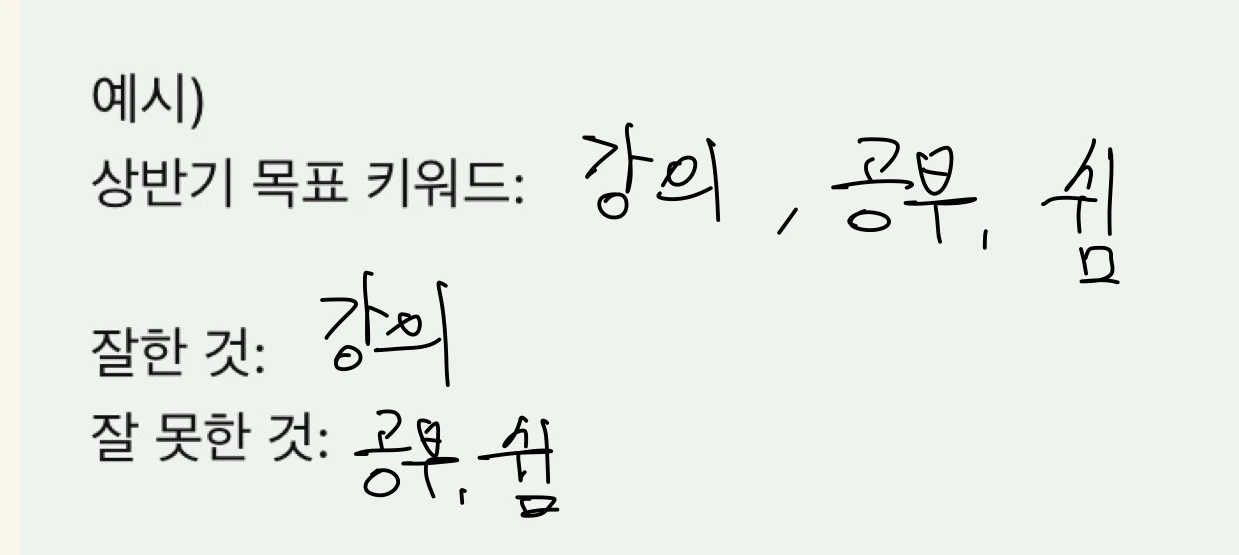 예시)
상반기 목표 키워드: 강의, 공부, 쉼
잘한 것: 강의
잘 못한 것: 공부, 쉼